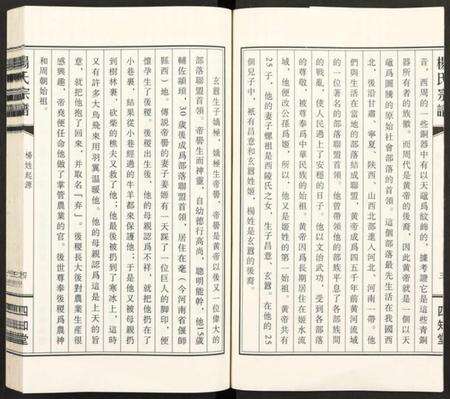 楊氏宗譜
三
四知堂
音，西周的一些銅器中有以天黿爲紋飾的，據考證它是這些青銅
器所有者的族徽，而周代是黃帝的後裔，因此黃帝就是一個以天
黿爲圖騰的原始社會部落的首領，這個部落最先生活在我國西
北，後沿甘肅、寧夏、陝西、山西北部進入河北、河南一帶。他
們與生活在當地的部落結成聯盟，黃帝成爲四五千年前黃河流域
的一位著名的部落聯盟首領，他曾帶領他的部族平息了各部族間
的戰亂，使人民過上了安穩的日子。他以文治武功，受到各部落
的尊敬，被尊奉爲中華民族的始祖。黃帝因爲長期居住在姬水流
域，他便改公孫爲姬，所以，他又是姬姓的第一始祖。黃帝共有
25子，他的妻子嫘祖是西陵氏之女，生子昌意、玄囂，在他的25
個兒子中，衹有昌意和玄囂姓姬，楊姓是玄囂的後裔。
玄囂生子嬌極，嬌極生帝嚳，帝嚳是黃帝以後又一位偉大的
部落聯盟首領，帝嚳生而神靈，自幼德行高尚，聰明能幹，他15歲
輔佐顓頊，20歲後成爲部落聯盟首領，居住在亳（今河南省偃師
縣西）地，傳說帝嚳的妻子姜嫄有一天踩了一位巨人的腳印，便
懷孕生了後稷，後稷出生後，他的母親認爲不祥，就把他扔在了
小巷裏，結果從小巷經過的牛羊都來保護他；于是他又被母親扔
到樹林裏，欲柴的樵夫又救了他；他最後被扔到了寒冰上，這時
又有許多大鳥飛來用羽翼溫暖他，他的母親認爲這是上天的旨
意，就把他抱了回來，并取名「弃」。後稷長大後對農業生産很
感興趣，帝堯便任命他做了掌管農業的官。後世尊奉後稷爲農神
和周朝始祖。
楊氏宗譜
楊姓起源
四知堂